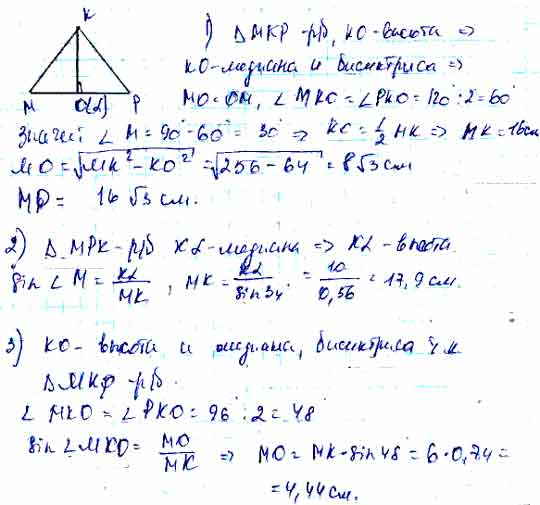 K
M O(L) P
1) Δ MKP - р/б, KO - высота =>
KO - медиана и биссектриса =>
MO = OM, ∠ MKO = ∠PKO = 120° : 2 = 60°
Значит ∠ M = 90° - 60° = 30° => KO = 1/2 MK => MK = 16 см
MO = √MK² - KO² = √256 - 64 = 8√3 см
MP = 16√3 см.
2) Δ MPK - р/б KL - медиана => KL - высота
sin ∠ M = KL/MK ; MK = KL/sin 34 = 10/0,56 = 17,9 см.
3) KO - высота и медиана, биссектриса т.к.
Δ MKP - р/б.
∠ MKO = ∠ PKO = 96 : 2 = 48
sin ∠ MKO = MO/MK => MO = MK · sin 48° = 6 · 0,74 =
= 4,44 см.